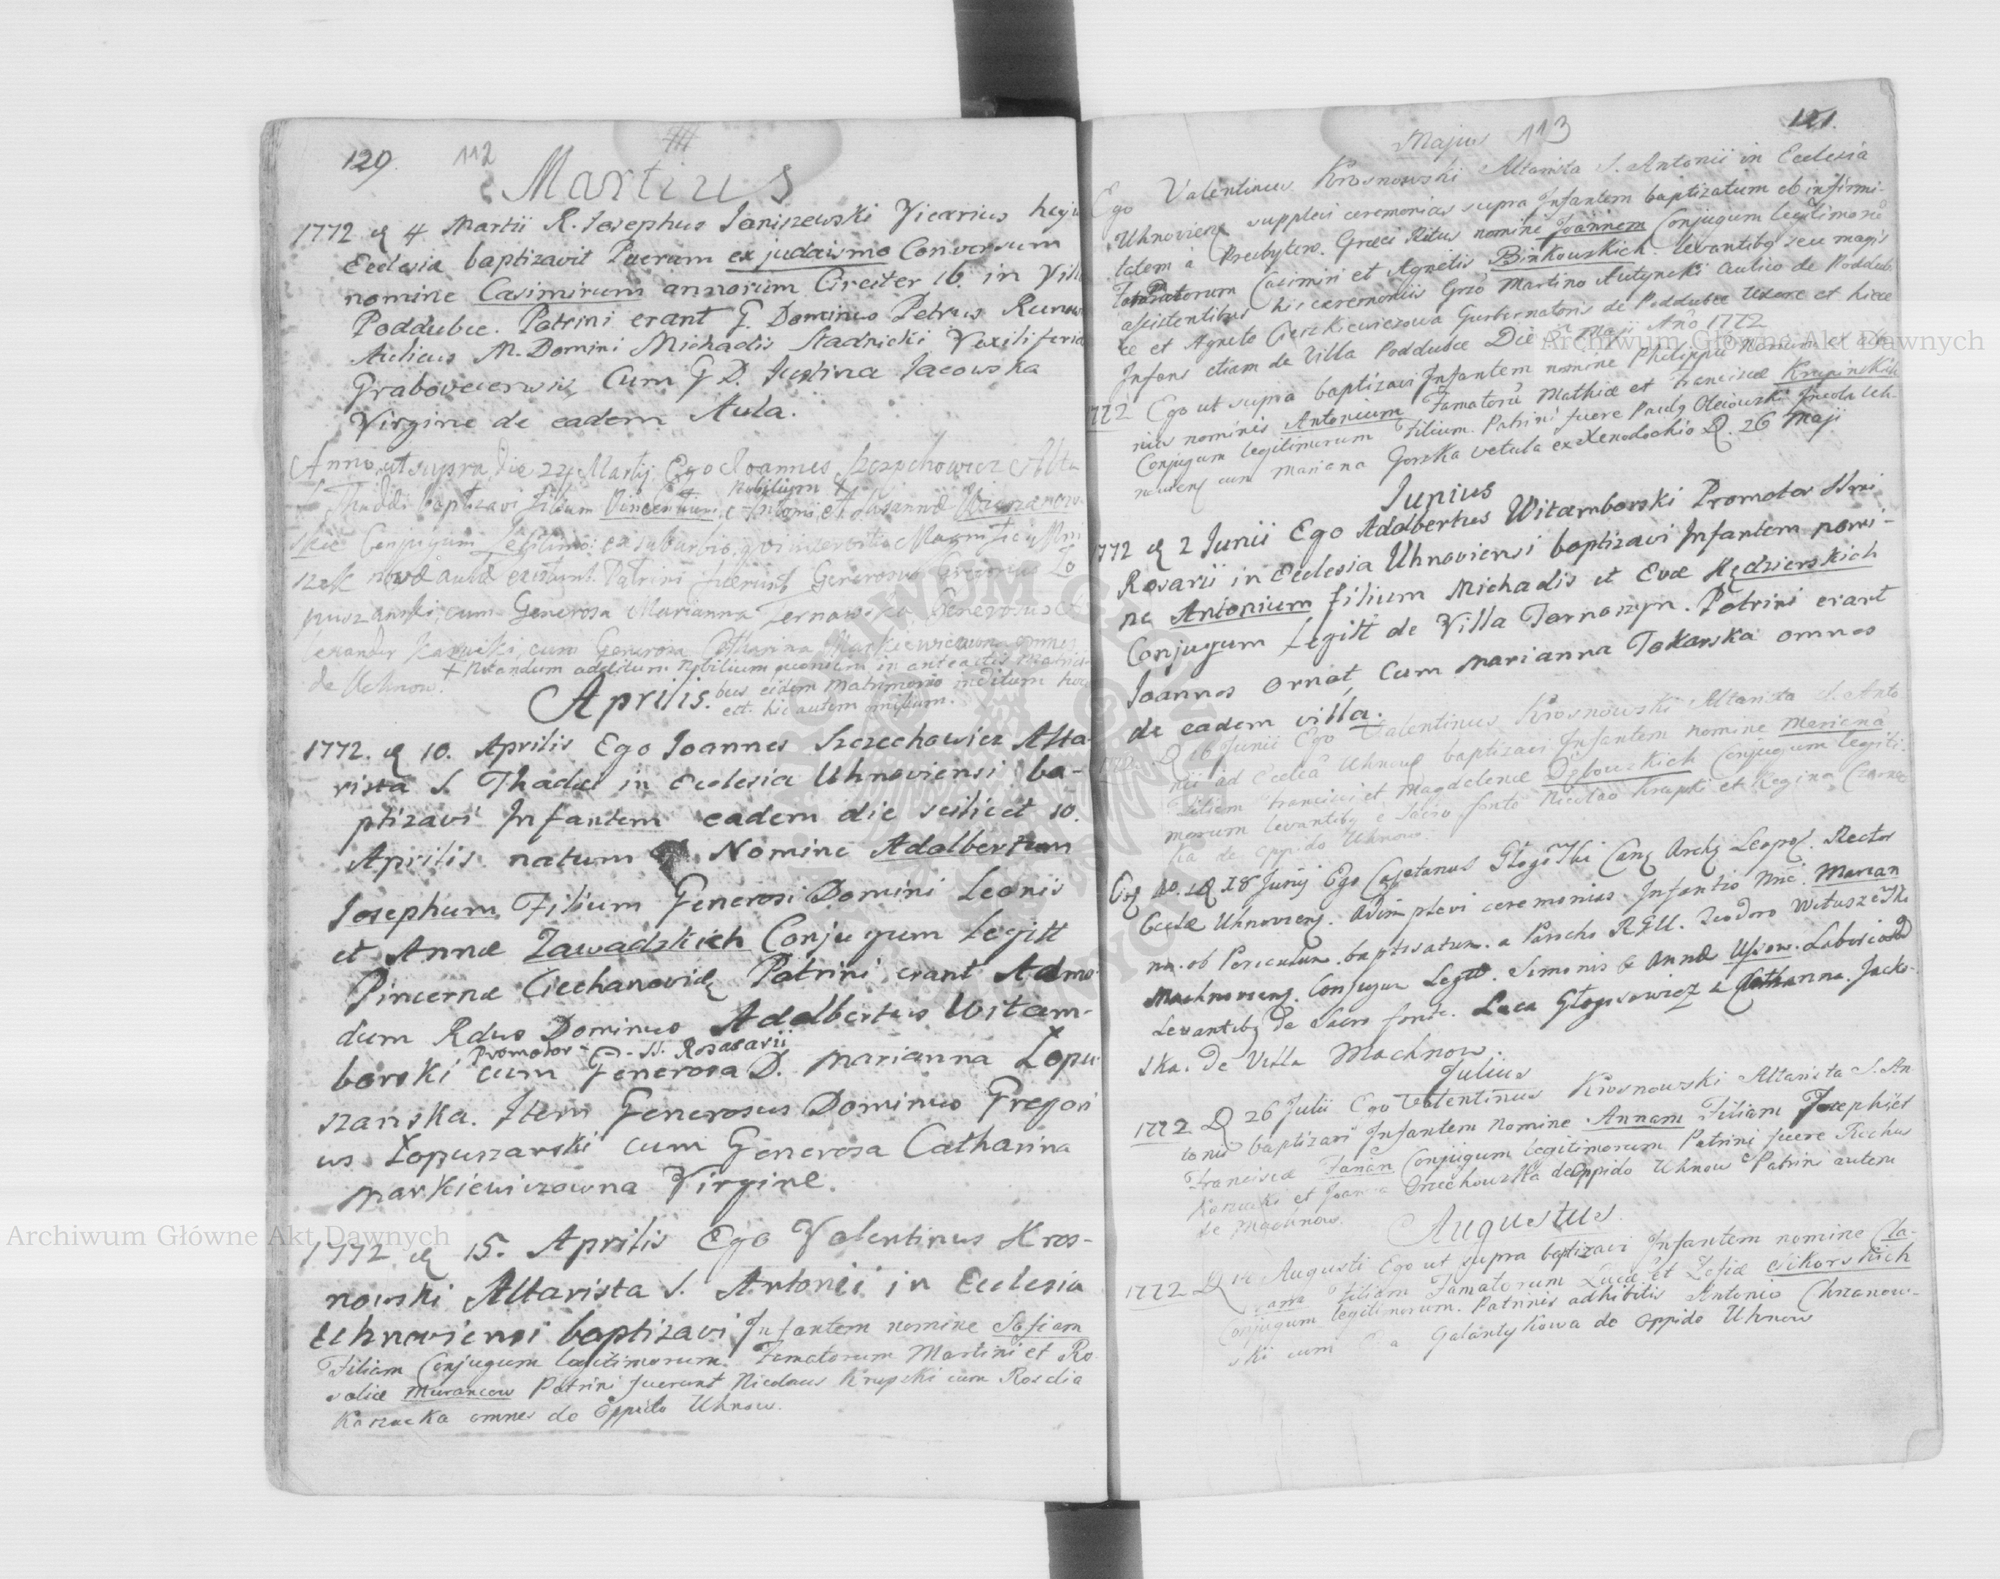 120. 112
Martius
1772 d 4 Martii R. Josephus Janiszewski Vicarius huju
Ecclesia baptizavit Puerum ex judaismo Conversum
nomine Casimirum annorum Circiter 16. in Villa
Poddubce. Patrini erant G. Dominus Petrus
Aulicus M. Domini Michaelis Stadnicki Vexiliferid
Cum G D. Justina Jacowska
Virgine de eadem Aula.
Anno ut supra die 24 Martij Ego Joannes Szczechowicz Alta
S. Thadei baptizavi filium Vincentium Nobilium + Antonii et Susannæ
Conjugum Legitimo: ex suburbio,
novæ aulæ existunt. Patrini fuerunt Generosus Gregorius Lo
puszanski, cum Generosa Marianna Generosus
cum Generosa Catharina Markiewiczowna omnes
de Uchnow. + Notandum additum Nobilium quoniam in anteactis
bus eidem Matrimonio inditum hoc
est. hic autem omissum.
Aprilis.
1772. d 10. Aprilis Ego Joannes Szczechowicz Alta-
rista S. Thadei in Ecclesia Uhnoviensi ba-
ptizavi Infantem eadem die scilicet 10.
Aprilis natum Nomine Adalbertum
Josephum Filium Generosi Domini Leonis
et Annæ Zawadzkich Conjugum Legitt
Pincernæ Ciechanoviæ Patrini erant Admo-
dum Rdus Dominus Adalbertus Witam-
borski Promotor S. Rosasarii cum Generosa D. Marianna Lopu
szanska. Item Generosus Dominus Gregori
us Lopuszanski cum Generosa Catharina
Markiewiczowna Virgine.
1772 d 15. Aprilis Ego Valentinus Kros-
nowski Altarista S. Antonii in Ecclesia
Uhnoviensi baptizavi Infantem nomine Sofiam
Filiam Conjugum legitimorum Famatorum Martini et Ro
saliæ Murancow Patrini fuerunt Nicolaus Krupski cum Rosalia
Karzacka omnes de Oppido Uhnow.
Majus 113 121.
Ego Valentinus Krosnowski Altarista S. Antonii in Ecclesia
Uhnoviens supplevi ceremonias supra Infantem baptizatum ob infirmi-
tatem a Presbytero Græci Ritus nomine Joannem Conjugum legitimorum
Famatorum Casimiri et Agnetis Binkowskich. levantibq seu magis
assistentibus his ceremoniis Grso Martino aulico de Poddub
ce et Agnete Gubernatoris de Poddubce Uxore et hicce
Infans etiam de Villa Poddubce Die Maji Ano 1772
1772 Ego ut supra baptizavi Infantem nomine Philippum et
nominis Antonium Famatorū Mathiæ et Franciscæ Krupinskich
Conjugum legitimorum Filium. Patrini fuere Paulq Incola Uh-
noviens cum Mariana Gorska vetula ex Xenodochio D. 26 Maji
Junius
1772 d 2 Junii Ego Adalbertus Witamborski Promotor SSmi
Rosarii in Ecclesia Uhnoviensi baptizavi Infantem nomi-
ne Antonium filium Michaelis et Evæ Kędzierskich
Conjugum Legitt de Villa Tarnoszyn. Patrini erant
Joannes Ornat cum Marianna Tokarska omnes
de eadem villa.
1772. D 16 Junii Ego Valentinus Krosnowski Altarista S. Anto
nii ad Eccleā Uhnovs baptizavi Infantem nomine Marianā
Filiam Francisci et Magdalenæ Conjugum legiti-
morum levantibq e Sacro fonte Nicolao Krupski et Regina
de oppido Uhnow.
D 28 Junij Ego Cajetanus Głogowski Cang Archg Leopol. Rector
Ecclæ Uhnoviens. Adimplevi ceremonias Infantis Nne. Marian
na. ob Periculum. baptisatum. a Parocho RGU. Teodoro
Machnoviens. Conjugum Legitt. Simonis & Annæ
Levantibq de Sacro fonte. Luca Głogosowicz & Catharina Jacko-
ska. de Villa Machnow.
Julius
1772 D 26 Julii Ego Valentinus Krosnowski Altarista S. An
tonii baptizavi Infantem nomine Annam Filiam Josephi et
Franciscæ Conjugum legitimorum Patrini fuere Rochus
et Joanna de Oppido Uhnow Patrini autem
de Machnow.
Augustus
1772 D Augusti Ego ut supra baptizavi Infantem nomine Cla-
ram Filiam Famatorum Lucæ et Zofiæ Sikorskich
Conjugum legitimorum. Patrinis adhibitis Antonio Chrzanow-
ski cum Galantykowa de Oppido Uhnow
Archiwum Główne Akt Dawnych
Archiwum Główne Akt Dawnych